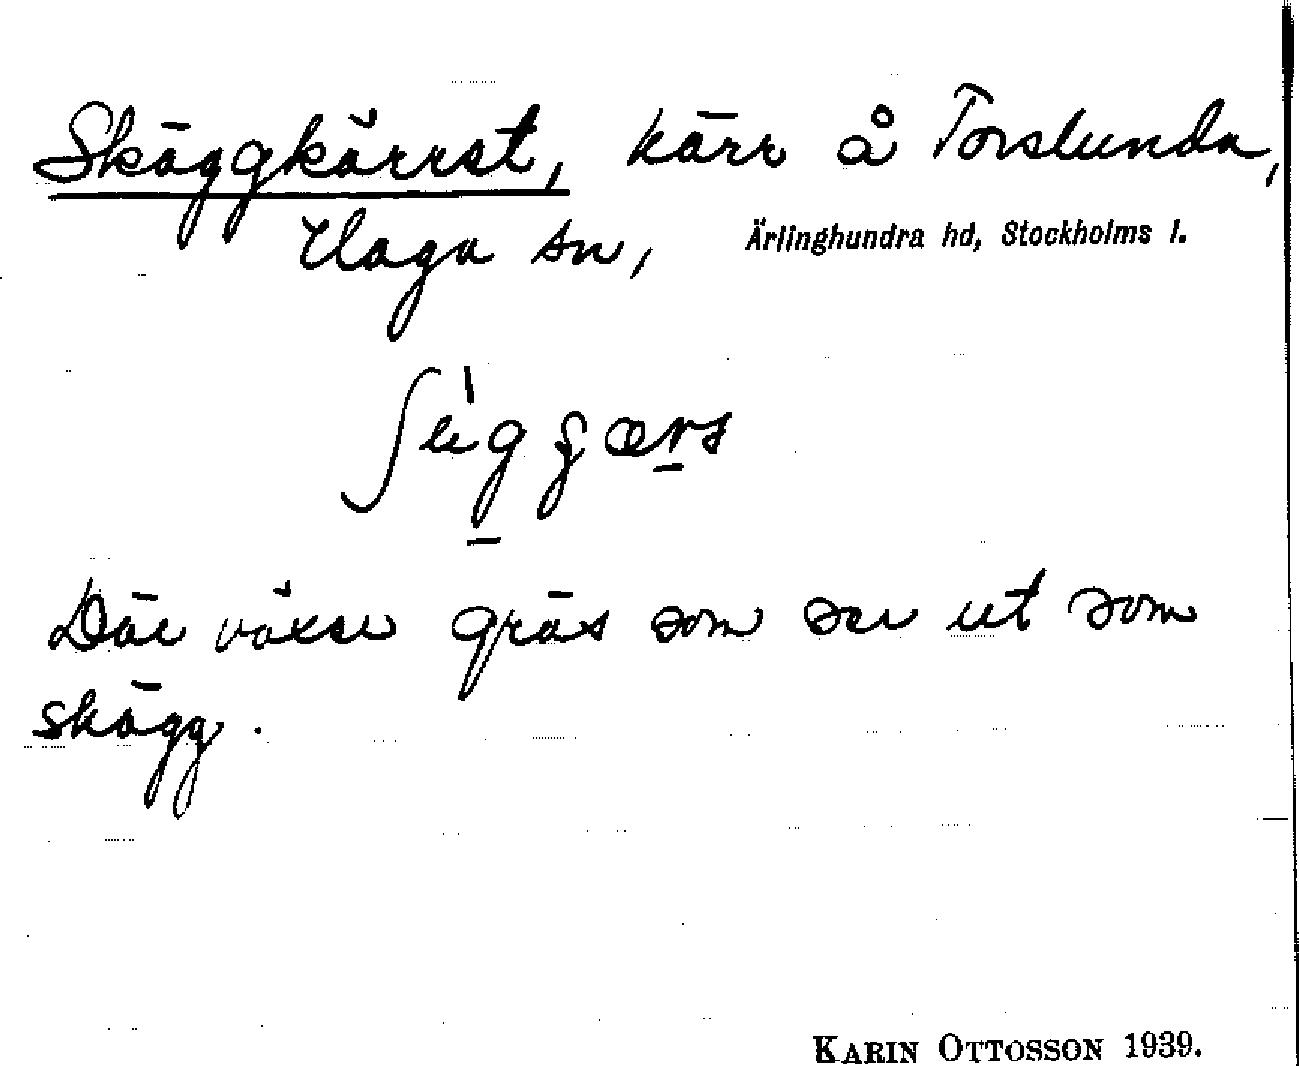 Skäggkärret, kärr å Torslunda,
Haga sn, Ärlinghundra hd, Stockholms l.
Där växer gräs som ser ut som
skägg.
KARIN OTTOSSON 1939.